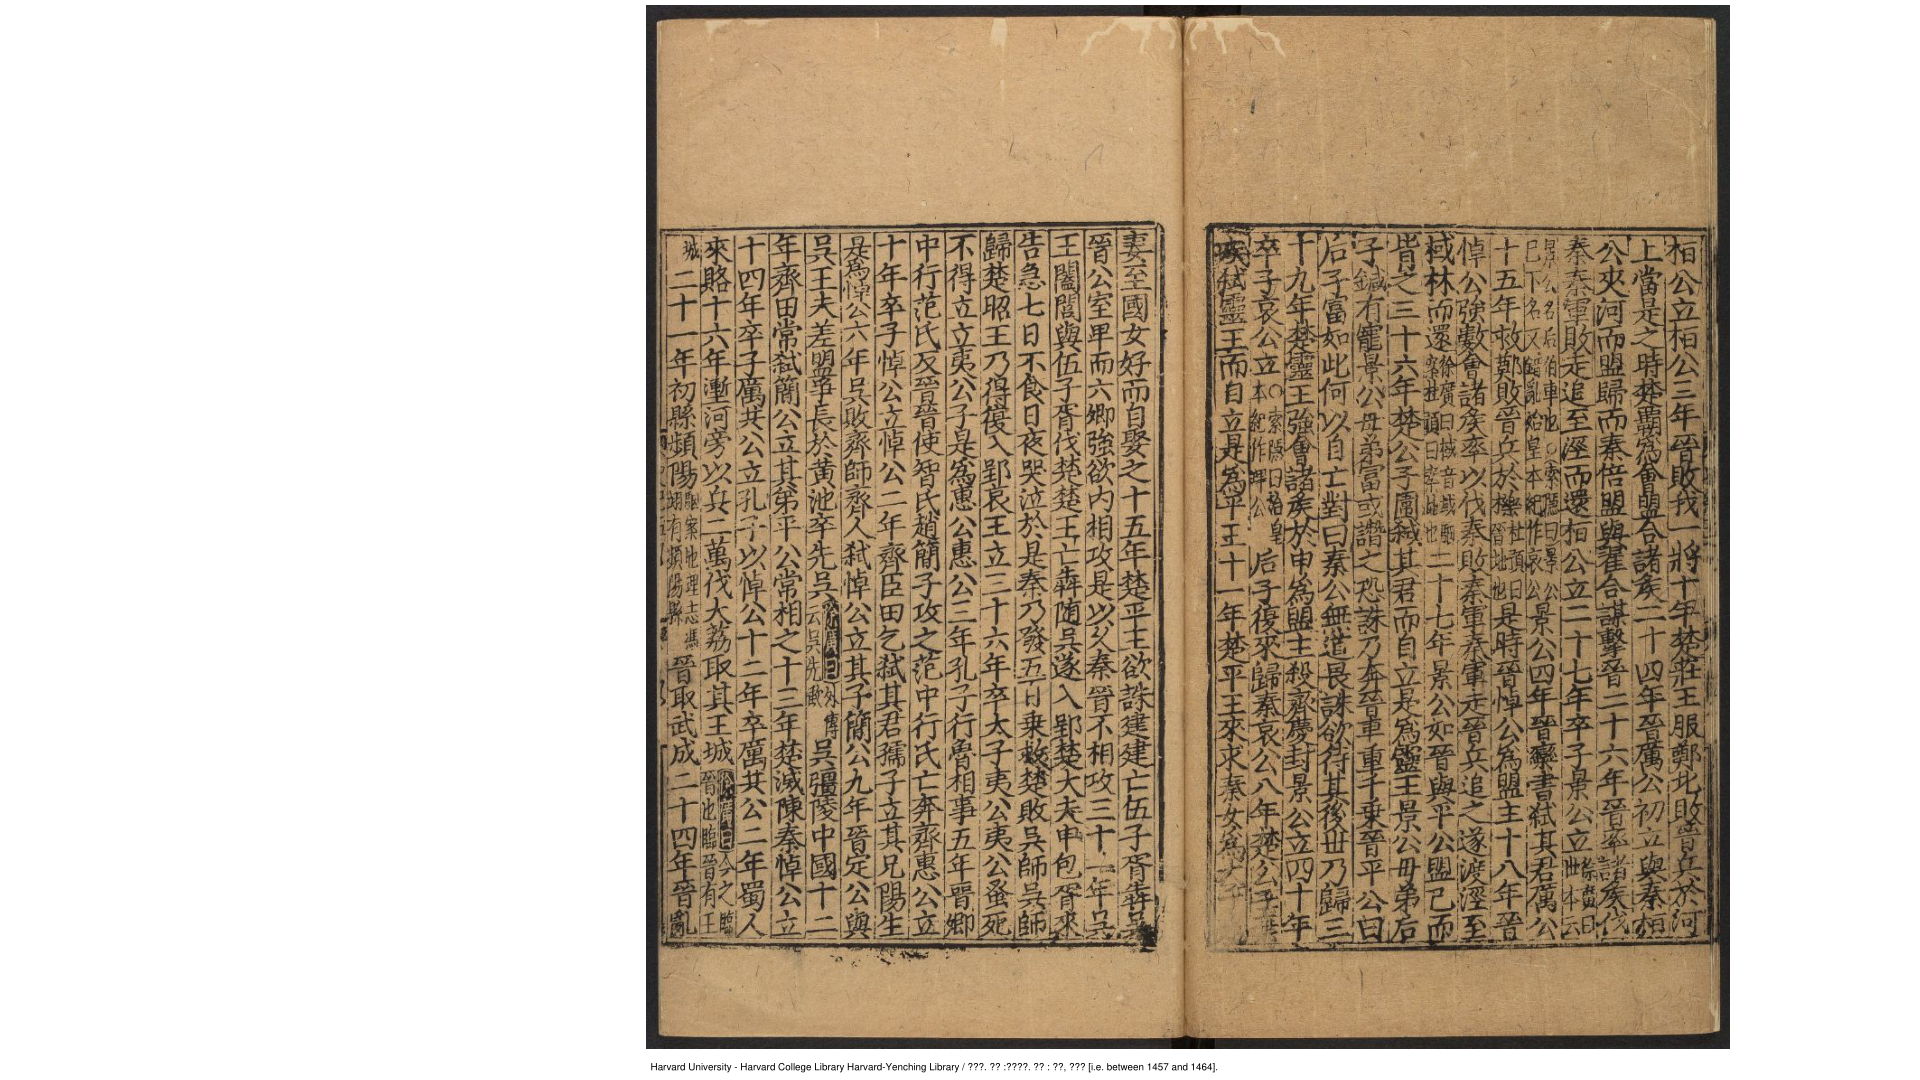 桓公立桓公三年晉敗我一將十年楚莊王服鄭北敗晉兵於河
上當是之時楚霸為會盟合諸侯二十四年晉厲公初立與秦桓
公夾河而盟歸而秦倍盟與翟合謀擊晉二十六年晉率諸侯伐
秦秦軍敗走追至涇而還桓公立二十七年卒子景公立徐廣曰世本云
景公名后伯車也○索隱曰景公已下名又錯亂始皇本紀作哀公景公四年晉欒書弒其君厲公
十五年救鄭敗晉兵於櫟杜預曰晉地也是時晉悼公為盟主十八年晉
悼公強數會諸侯率以伐秦敗秦軍秦軍走晉兵追之遂渡涇至
棫林而還徐廣曰棫音域駰案杜預曰秦地也二十七年景公如晉與平公盟已而
背之三十六年楚公子圍弒其君而自立是為靈王景公母弟后
子鍼有寵景公母弟富或譖之恐誅乃奔晉車重千乘晉平公曰
后子富如此何以自亡對曰秦公無道畏誅欲待其後世乃歸三
十九年楚靈王強會諸侯於申為盟主殺齊慶封景公立四十年
卒子哀公立○索隱曰始皇本紀作㻫公后子復來歸秦哀公八年楚公子棄
疾弒靈王而自立是為平王十一年楚平王來求秦女為太子
妻至國女好而自娶之十五年楚平王欲誅建建亡伍子胥犇吳
晉公室卑而六卿強欲內相攻是以久秦晉不相攻三十一年吳
王闔閭與伍子胥伐楚楚王亡犇隨吳遂入郢楚大夫申包胥來
告急七日不食日夜哭泣於是秦乃發五百乘救楚敗吳師吳師
歸楚昭王乃得復入郢哀王立三十六年卒太子夷公夷公蚤死
不得立立夷公子是為惠公惠公三年孔子行魯相事五年晉卿
中行范氏反晉晉使智氏趙簡子攻之范中行氏亡奔齊惠公立
十年卒子悼公立悼公二年齊臣田乞弒其君孺子立其兄陽生
是為悼公六年吳敗齊師齊人弒悼公立其子簡公九年晉定公與
吳王夫差盟爭長於黃池卒先吳徐廣曰外傳云吳先歃吳彊陵中國十二
年齊田常弒簡公立其弟平公常相之十三年楚滅陳秦悼公立
十四年卒子厲共公立孔子以悼公十二年卒厲共公二年蜀人
來賂十六年壍河旁以兵二萬伐大荔取其王城徐廣曰今之臨晉也臨晉有王
城二十一年初縣頻陽駰案地理志馮翊有頻陽縣晉取武成二十四年晉亂
Harvard University - Harvard College Library Harvard-Yenching Library / ???. ?? :????. ?? : ??, ??? [i.e. between 1457 and 1464].